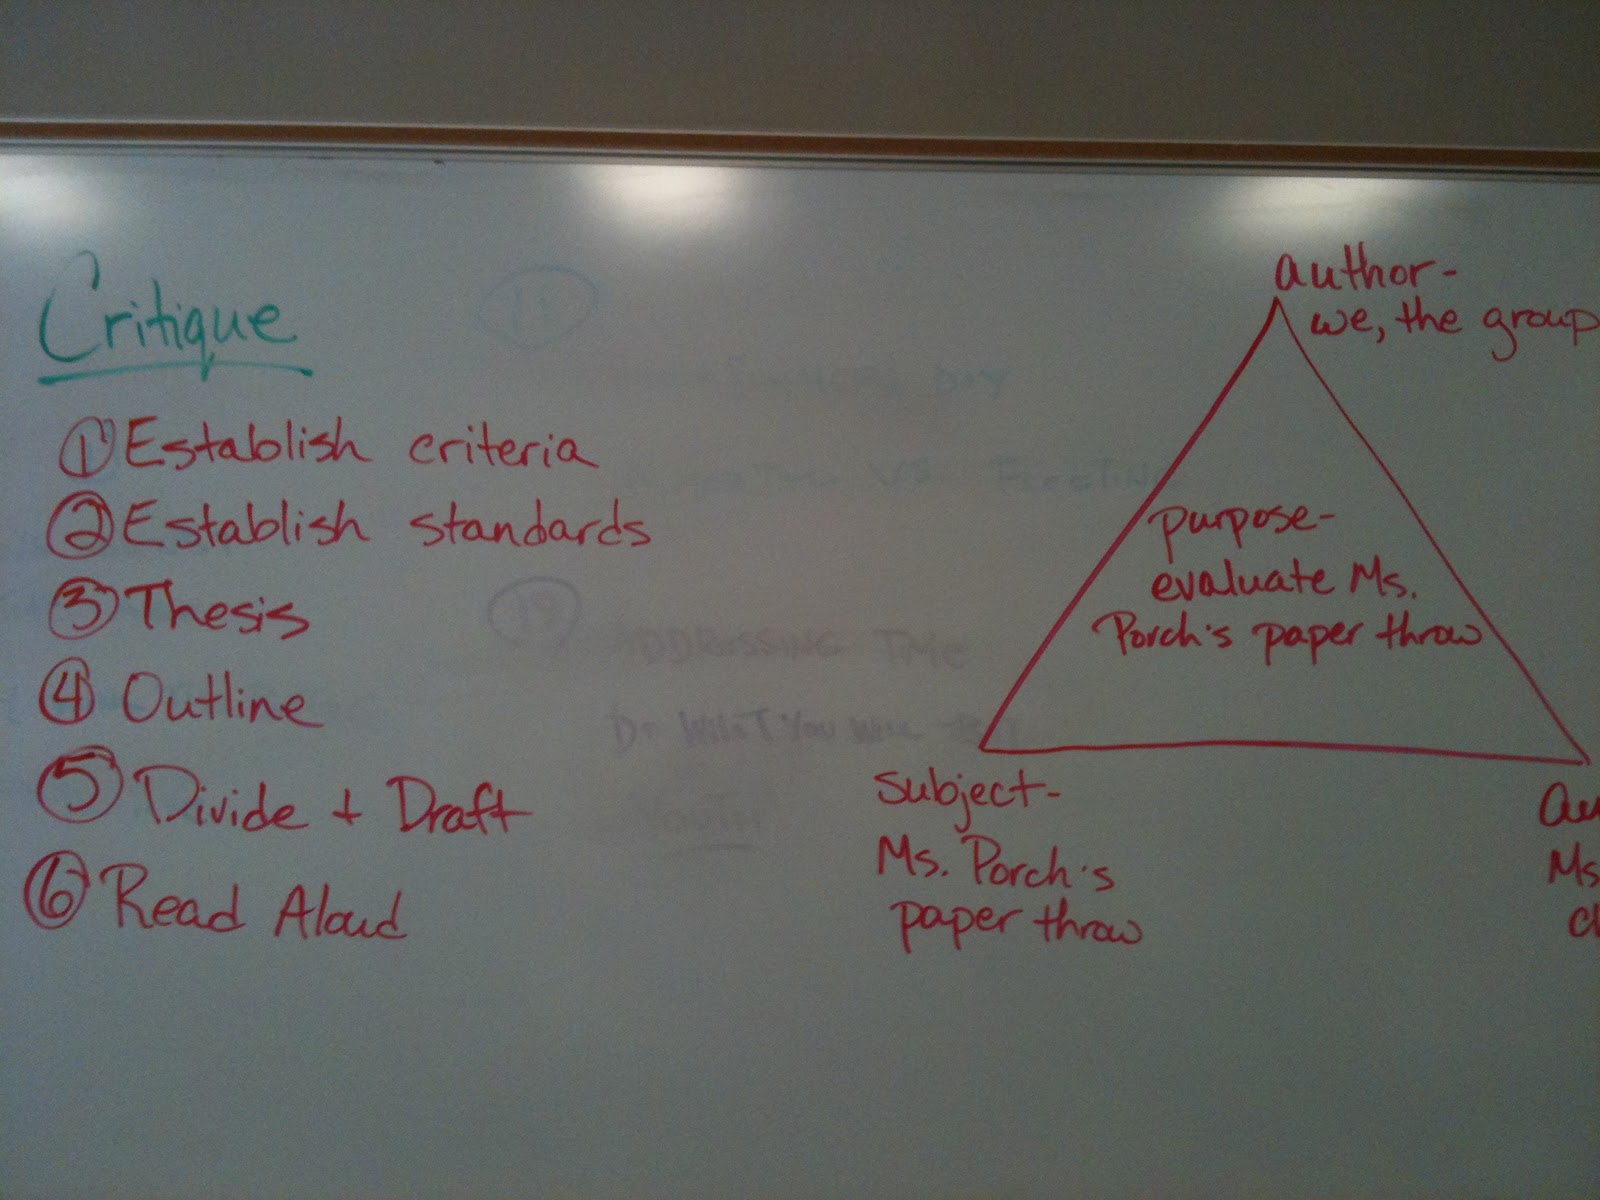 Critique
① Establish criteria
② Establish standards
③ Thesis
④ Outline
⑤ Divide + Draft
⑥ Read Aloud
author-
we, the group
purpose-
evaluate Ms.
Porch's paper throw
subject-
Ms. Porch's
paper throw
Au
Ms
cl
ADDRESSING TIME
DO WHAT YOU WILL
YOUTH